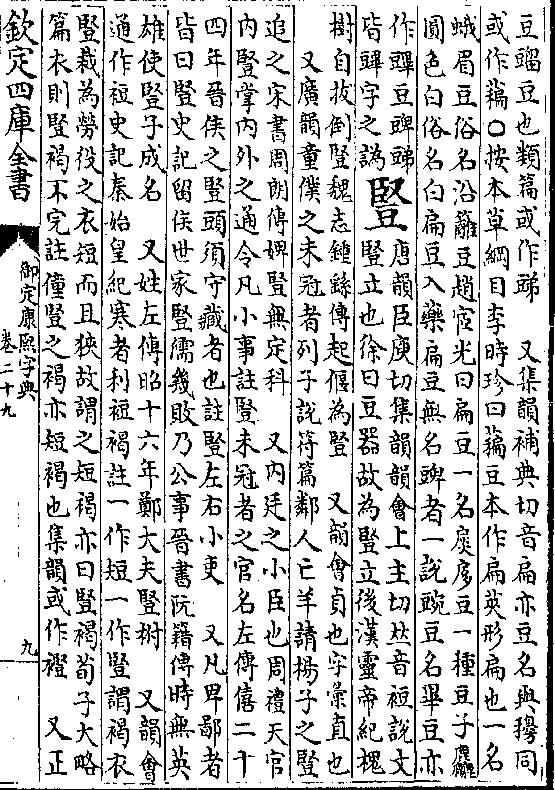 豆䜺豆也類篇或作䜻　又集韻補典切音扁亦豆名與穆同
或作藊○按本草綱目李時珍曰藊豆本作扁莢形扁也一名
蛾眉豆俗名沿籬豆趙宧光曰扁豆一名㾾豆一種豆子
圓色白俗名白扁豆入藥扁豆無名豍者一說豌豆名畢豆亦
作䟆豆豍䜻
皆豍字之譌
豎
唐韻臣庾切集韻韻會上主切𠀤音裋說文
豎立也徐曰豆器故為豎立後漢靈帝紀槐
樹自拔倒豎魏志鍾繇傳起偃為豎　又韻會貞也字彙直也
又廣韻童僕之未冠者列子說符篇鄰人亡羊請楊子之豎
追之宋書周朗傳婢豎無定科　又內廷之小臣也周禮天官
內豎掌內外之通令凡小事註豎未冠者之官名左傳僖二十
四年晉侯之豎頭須守藏者也註豎左右小吏　又凡卑鄙者
皆曰豎史記留侯世家豎儒幾敗乃公事晉書阮籍傳時無英
雄使豎子成名　又姓左傳昭十六年鄭大夫豎柎　又韻會
通作裋史記秦始皇紀寒者利裋褐註一作短一作豎謂褐衣
豎裁為勞役之衣短而且狹故謂之短褐亦曰豎褐荀子大略
篇衣則豎褐不完註僮豎之褐亦短褐也集韻或作䙛　又正
欽定四庫全書
御定康熙字典
卷二十九
九